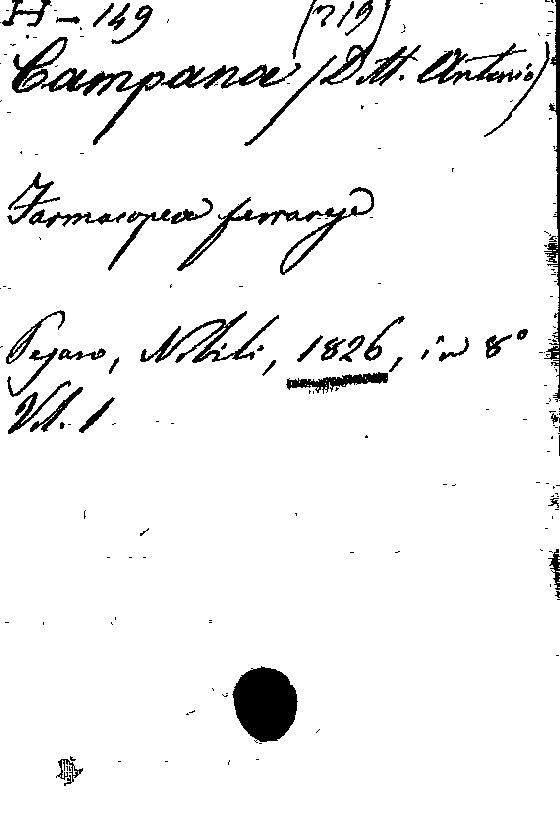 H - 149 (219)
Campana (Dott. Antonio)
Farmacopea ferrarese
Pesaro, Nobili, 1826, in 8°
Vol. 1